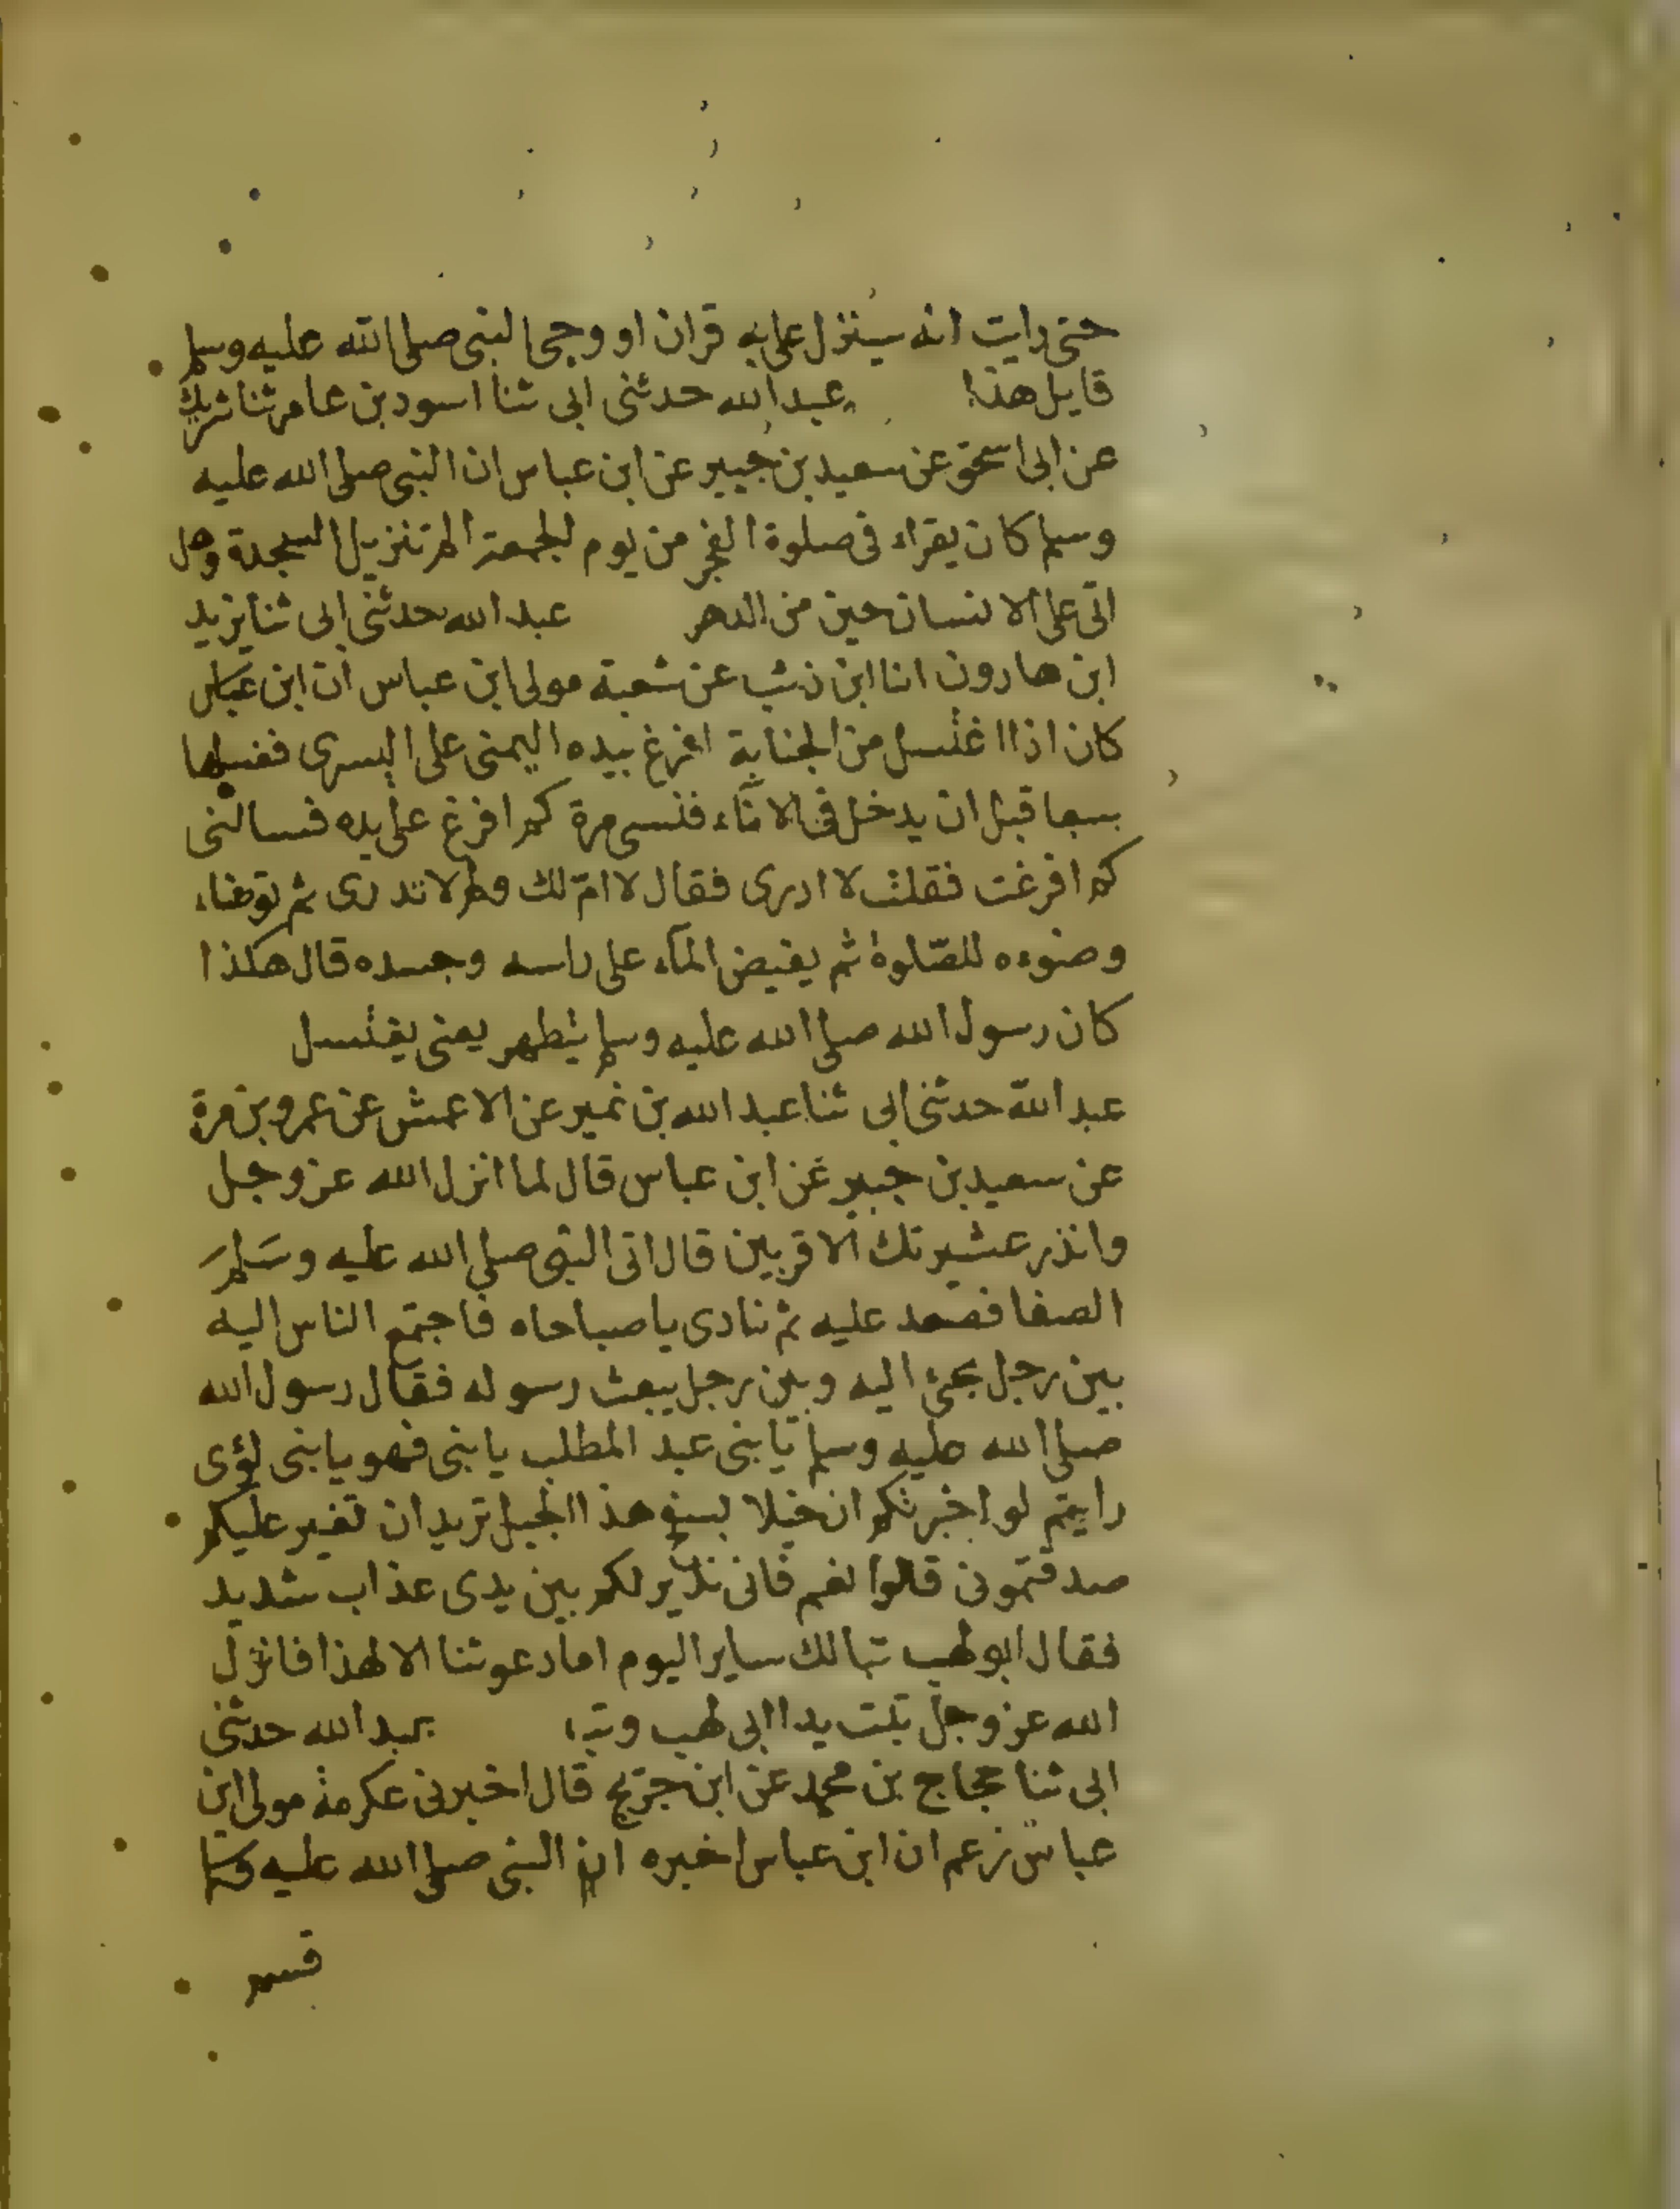 حتى رايت انه سينزل على به قران او وحى النبى صلى الله عليه وسلم
قايل هذا عبد الله حدثنى ابى ثنا اسود بن عامر ثنا شريك
عن ابى اسحق عن سعيد بن جبير عن ابن عباس ان النبى صلى الله عليه
وسلم كان يقراء فى صلوة الفجر من يوم الجمعة الم تنزيل السجدة وهل
اتى على الانسان حين من الدهر عبد الله حدثنى ابى ثنا يزيد
ابن هارون انا ابن ذئب عن شعبة مولى ابن عباس ان ابن عباس
كان اذا اغتسل من الجنابة افرغ بيده اليمنى على اليسرى فغسلها
سبعا قبل ان يدخل فى الاناء فنسى مرة كم افرغ على يده فسالنى
كم افرغت فقلت لا ادرى فقال لا ام لك ولم لا تدرى ثم توضاء
وضوءه للصلوة ثم يفيض الماء على راسه وجسده قال هكذا
كان رسول الله صلى الله عليه وسلم يتطهر يعنى يغتسل
عبد الله حدثنى ابى ثنا عبد الله بن نمير عن الاعمش عن عمرو بن مرة
عن سعيد بن جبير عن ابن عباس قال لما انزل الله عز وجل
وانذر عشيرتك الاقربين قال اتى النبى صلى الله عليه وسلم
الصفا فصعد عليه ثم نادى يا صباحاه فاجتمع الناس اليه
بين رجل يجئ اليه وبين رجل يبعث رسوله فقال رسول الله
صلى الله عليه وسلم يا بنى عبد المطلب يا بنى فهو يا بنى لؤى
رايتم لو اخبرتكم ان خيلا بسفح هذا الجبل تريد ان تغير عليكم
صدقتمونى قالوا نعم فانى نذير لكم بين يدى عذاب شديد
فقال ابو لهب تبا لك ساير اليوم اما دعوتنا الا لهذا فانزل
الله عز وجل تبت يدا ابى لهب وتب عبد الله حدثنى
ابى ثنا حجاج بن محمد عن ابن جريج قال اخبرنى عكرمة مولى ابن
عباس زعم ان ابن عباس اخبره ان النبى صلى الله عليه وسلم
قسم